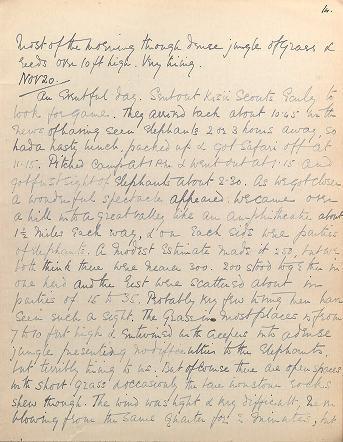 14.
Most of the morning through dense jungle of Grass &
reeds over 10 ft high. Very tiring.
Nov 20.
An Eventful day. Sent out Kisii Scouts Early to
look for game. They arrived back about 10.45 with the
news of having seen Elephants 2 or 3 hours away, so
had a hasty lunch, packed up & got Safari off at
11.15. Pitched Camp at 1 PM & went out at 1.15 and
got first sight of Elephants about 2.30. As we got closer
a wonderful spectacle appeared. We came over
a hill into a Great valley like an amphitheatre about
1½ miles Each way, & on Each side were parties
of Elephants. A modest Estimate made it 250, but we
both think there were nearer 300. 200 stood together in
one herd and the rest were scattered about in
parties of 15 to 35. Probably very few living men have
seen such a sight. The Grass in most places is from
7 to 10 feet high & Entwined with creepers into a dense
jungle presenting no difficulties to the Elephants,
but terribly tiring to us. But of course there are open spaces
with short Grass & occasionally the bare ironstone rocks
shew through. The wind was light & very difficult,
blowing from the same Quarter for 2 minutes, but